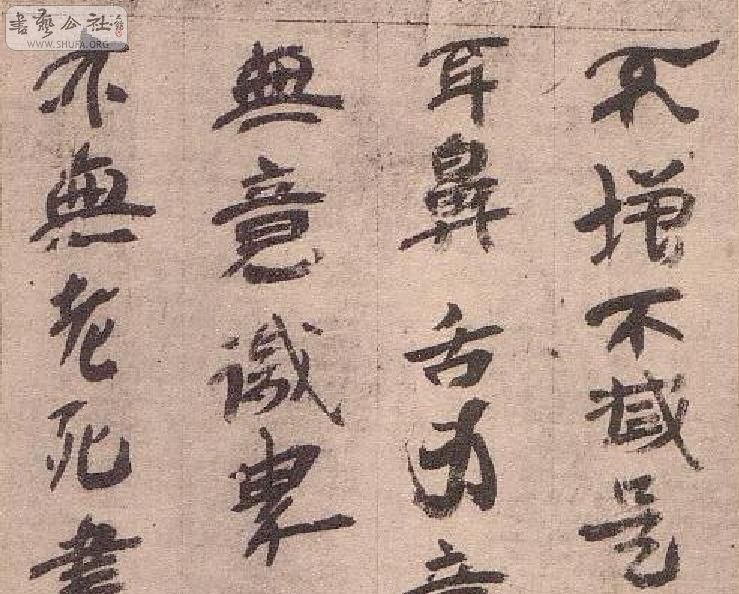 書藝公社
WWW.SHUFA.ORG
不增不減是
耳鼻舌身意
無意識界
亦無老死盡